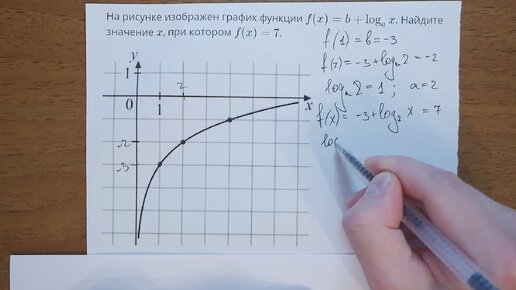 На рисунке изображен график функции f(x) = b + logₐ x. Найдите
значение x, при котором f(x) = 7.
f(1) = b = -3
f(2) = -3 + logₐ2 = -2
logₐ2 = 1 ; a = 2
f(x) = -3 + log₂ x = 7
log
y
1
2
0
1
x
-2
-3